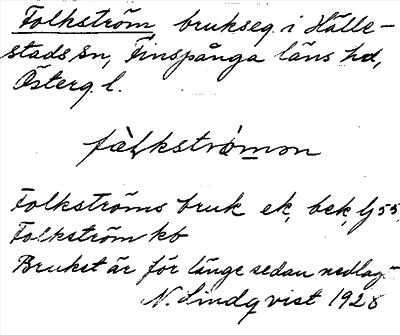 Folkström, brukseg. i Hälle-
stads sn, Finspånga läns hd,
Österg. l.
Folkströms bruk ek, bek, lj 55,
Folkström kb
Bruket är för länge sedan nedlagt
N. Lindqvist 1928